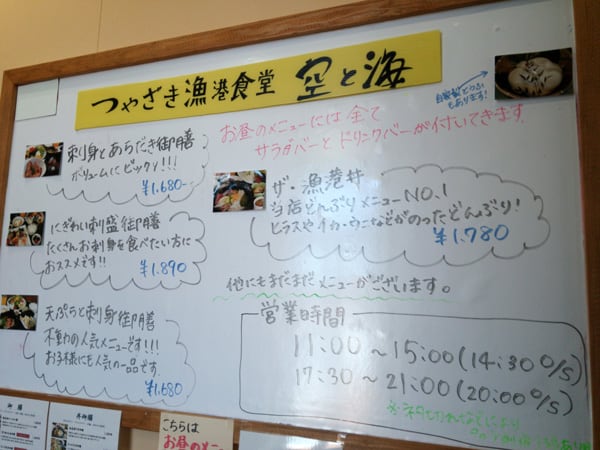 つやざき漁港食堂 空と海
自家製とうふもあります!
お昼のメニューには全て
サラダバーとドリンクバーが付いてきます
刺身とあらだき御膳
ボリュームにビックリ!!!
¥1.680-
にぎわい刺盛御膳
たくさんお刺身を食べたい方に
おススメです!!
¥1.890
天ぷらと刺身御膳
不動の人気メニューです!!!
お子様にも人気の一品です
¥1.680
ザ・漁港丼
当店どんぶりメニューNO.1
ヒラスやイカ・ウニなどがのったどんぶり!
¥1.780
他にもまだまだメニューがございます。
営業時間
11:00~15:00(14:30 O/S)
17:30~21:00(20:00 O/S)
※ネタ切れなどにより
こちらは
お昼のメニ